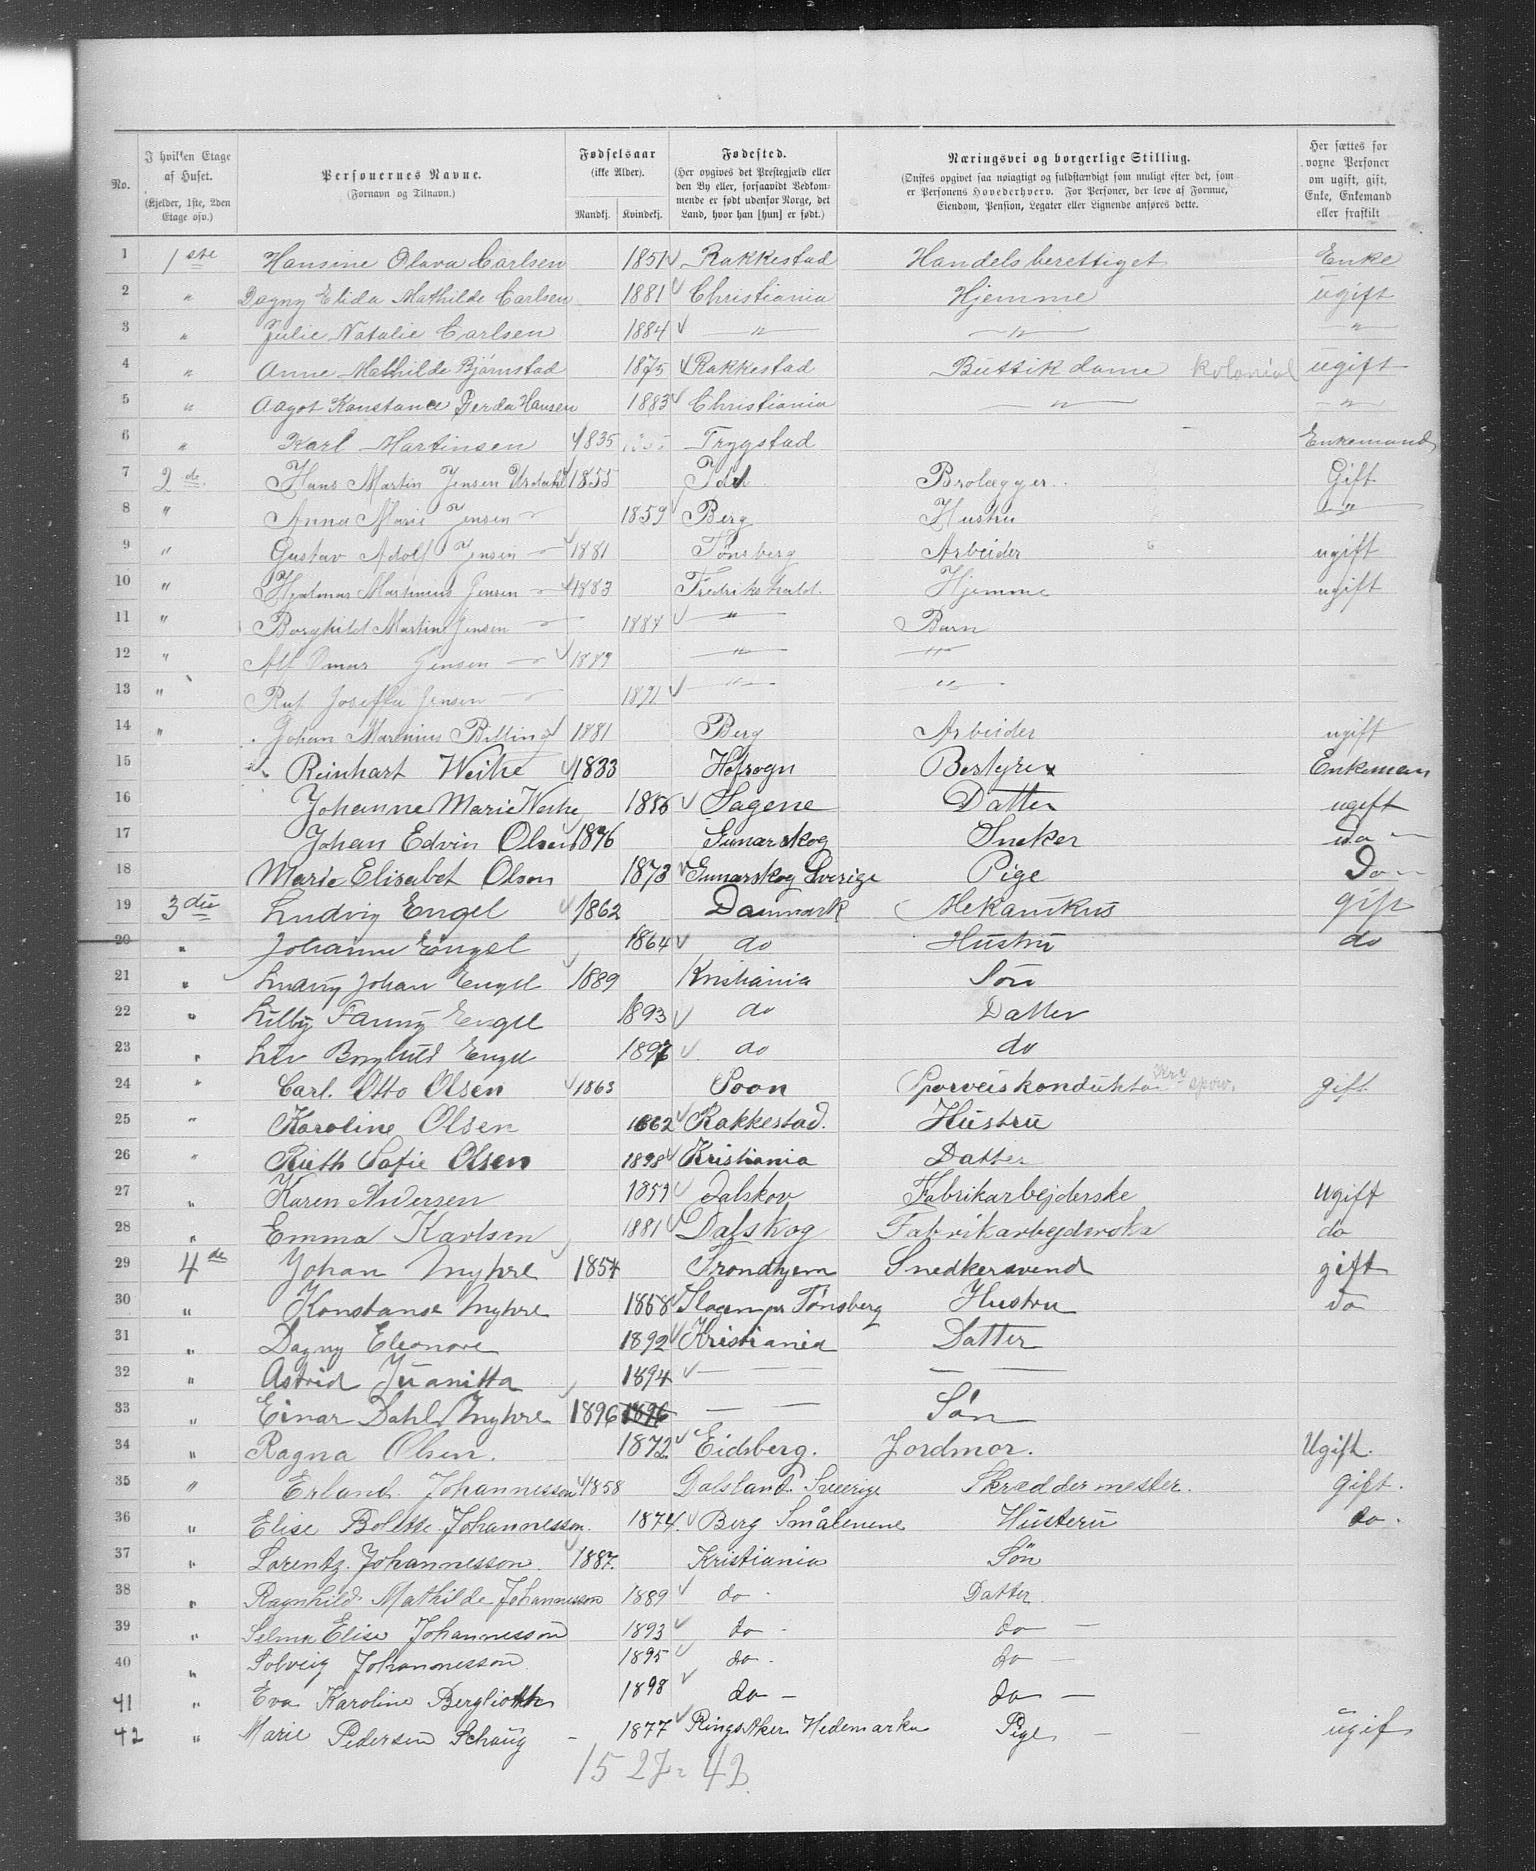 No.
I hvilken Etage af Huset.
(Kjelder, 1ste, 2den Etage osv.)
Personernes Navne.
(Fornavn og Tilnavn.)
Fødselsaar
(ikke Alder).
Mandkj. Kvindekj.
Fødested.
(Her opgives det Prestegjæld eller den By eller, forsaavidt Vedkommende er født udenfor Norge, det Land, hvor han [hun] er født.)
Næringsvei og borgerlige Stilling.
(Ønskes opgivet saa nøiagtigt og fuldstændigt som muligt efter det, som er Personens Hovederhverv. For Personer, der leve af Formue, Eiendom, Pension, Legater eller Lignende anføres dette.
Her sættes for voxne Personer om ugift, gift, Enke, Enkemand eller fraskilt
1 1ste Hansine Olava Carlsen 1851 Rakkestad Handelsberettiget Enke
2 " Dagny Elida Mathilde Carlsen 1881 Christiania Hjemme ugift
3 " Julie Natalie Carlsen 1884 " " "
4 " Anne Mathilde Bjørnstad 1875 Rakkestad Buttikdame Kolonial ugift
5 " Aagot Konstance Gerda Hansen 1883 Christiania " "
6 " Karl Martinsen 1835 Trygstad Enkemand
7 2de Hans Martin Jensen Urdahl 1855 Idd Brolægger Gift
8 " Anna Marie Jensen 1859 Berg Hustru "
9 " Gustav Adolf Jensen 1881 Tønsberg Arbeider ugift
10 " Hjalmar Martinius Jensen 1883 Fredrikshald. Hjemme ugift
11 " Borghild Martine Jensen 1887 " Barn
12 " Alf Omar Jensen 1889 " "
13 " Rut Josefta Jensen 1891 " "
14 " Johan Marinius Billing 1881 Berg Arbeider ugift
15 " Reinhart Weike 1833 Hofsogn Bestyrer Enkeman
16 Johanne Marie Weike 1856 Sagene Datter ugift
17 Johan Edvin Olsen 1876 Gunarskog Sneker do
18 Marie Elisabet Olson 1873 Gunarskog Sverige Pige Do
19 3die Ludvig Engel 1862 Danmark Mekanikus gift
20 " Johanne Engel 1864 do Hustru do
21 " Ludvig Johan Engel 1889 Kristiania Søn
22 " Lilly Fanny Engel 1893 do Datter
23 " Liv Borghild Engel 1897 do do
24 " Carl. Otto Olsen 1863 Soon Sporveiskonduktør gift
25 " Karoline Olsen 1862 Rakkestad. Hustru
26 " Ruth Sofie Olsen 1898 Kristiania Datter
27 " Karen Andersen 1859 Dalskov Fabrikarbejderske Ugift
28 " Emma Karlsen 1881 Dalskog Fabrikarbejderska do
29 4de Johan Myhre 1854 Trondhjem Snedkersvend gift
30 " Konstanse Myhre 1868 Slagen pr Tønsberg Hustru do
31 " Dagny Eleonore 1892 Kristiania Datter
32 " Astrid Juanitta 1894 — — — —
33 " Einar Dahl Myhre 1896 1896 — — Søn
34 " Ragna Olsen. 1872 Eidsberg. Jordmor. Ugift.
35 " Erland. Johannesson 1858 Dalsland. Sverige Skræddermester. gift.
36 " Elise Bollette Johannesson. 1874. Berg Smålenene Husteru do.
37 " Lorentz. Johannesson. 1887. Kristiania Søn
38 " Ragnhild Mathilde Johannesson 1889 do Datter
39 " Selma Elise Johannesson 1893 do - do —
40 " Solveig Johannesson 1895 do - do —
41 " Eva Karoline Bergliotth 1898 do — do —
42 " Marie Pedersen Schaug - 1877 Ringsaker Hedemarken Pige — — ugif
15 27 = 42